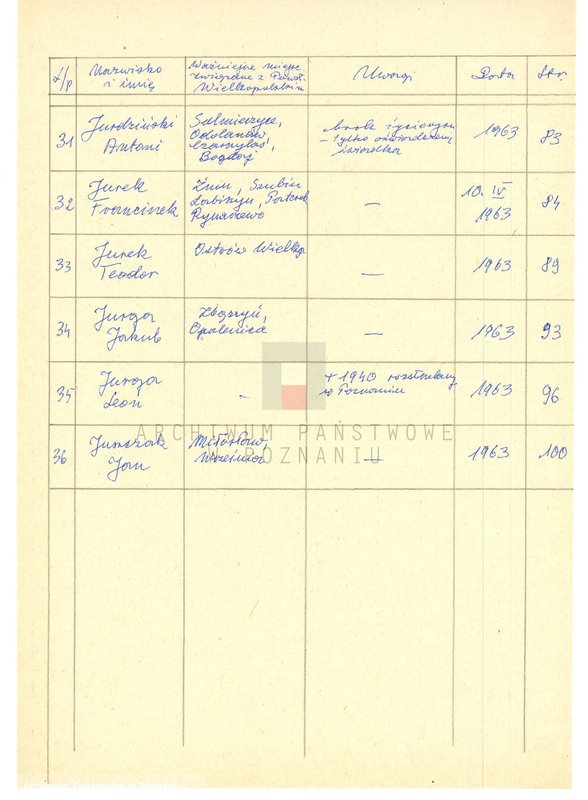 L/p Nazwisko i imię Ważniejsze miejsc. związane z Powst. Wielkopolskim Uwagi Data Str.
31 Jurdziński Antoni Sulmierzyce, Odolanów, Czarnylas, Bogdaj brak życiorysu - tylko 1963 83
32 Jurek Franciszek Żnin, Szubin Łabiszyn, Rynarzewo — 10. IV 1963 84
33 Jurek Teodor Ostrów Wielkp. — 1963 89
34 Jurga Jakub Zbąszyń, Opalenica — 1963 93
35 Jurga Leon - + 1940 rozstrzelany w Poznaniu 1963 96
36 Juszczak Jan Miłosław, Września — 1963 100
ARCHIWUM PAŃSTWOWE
POZNANIU